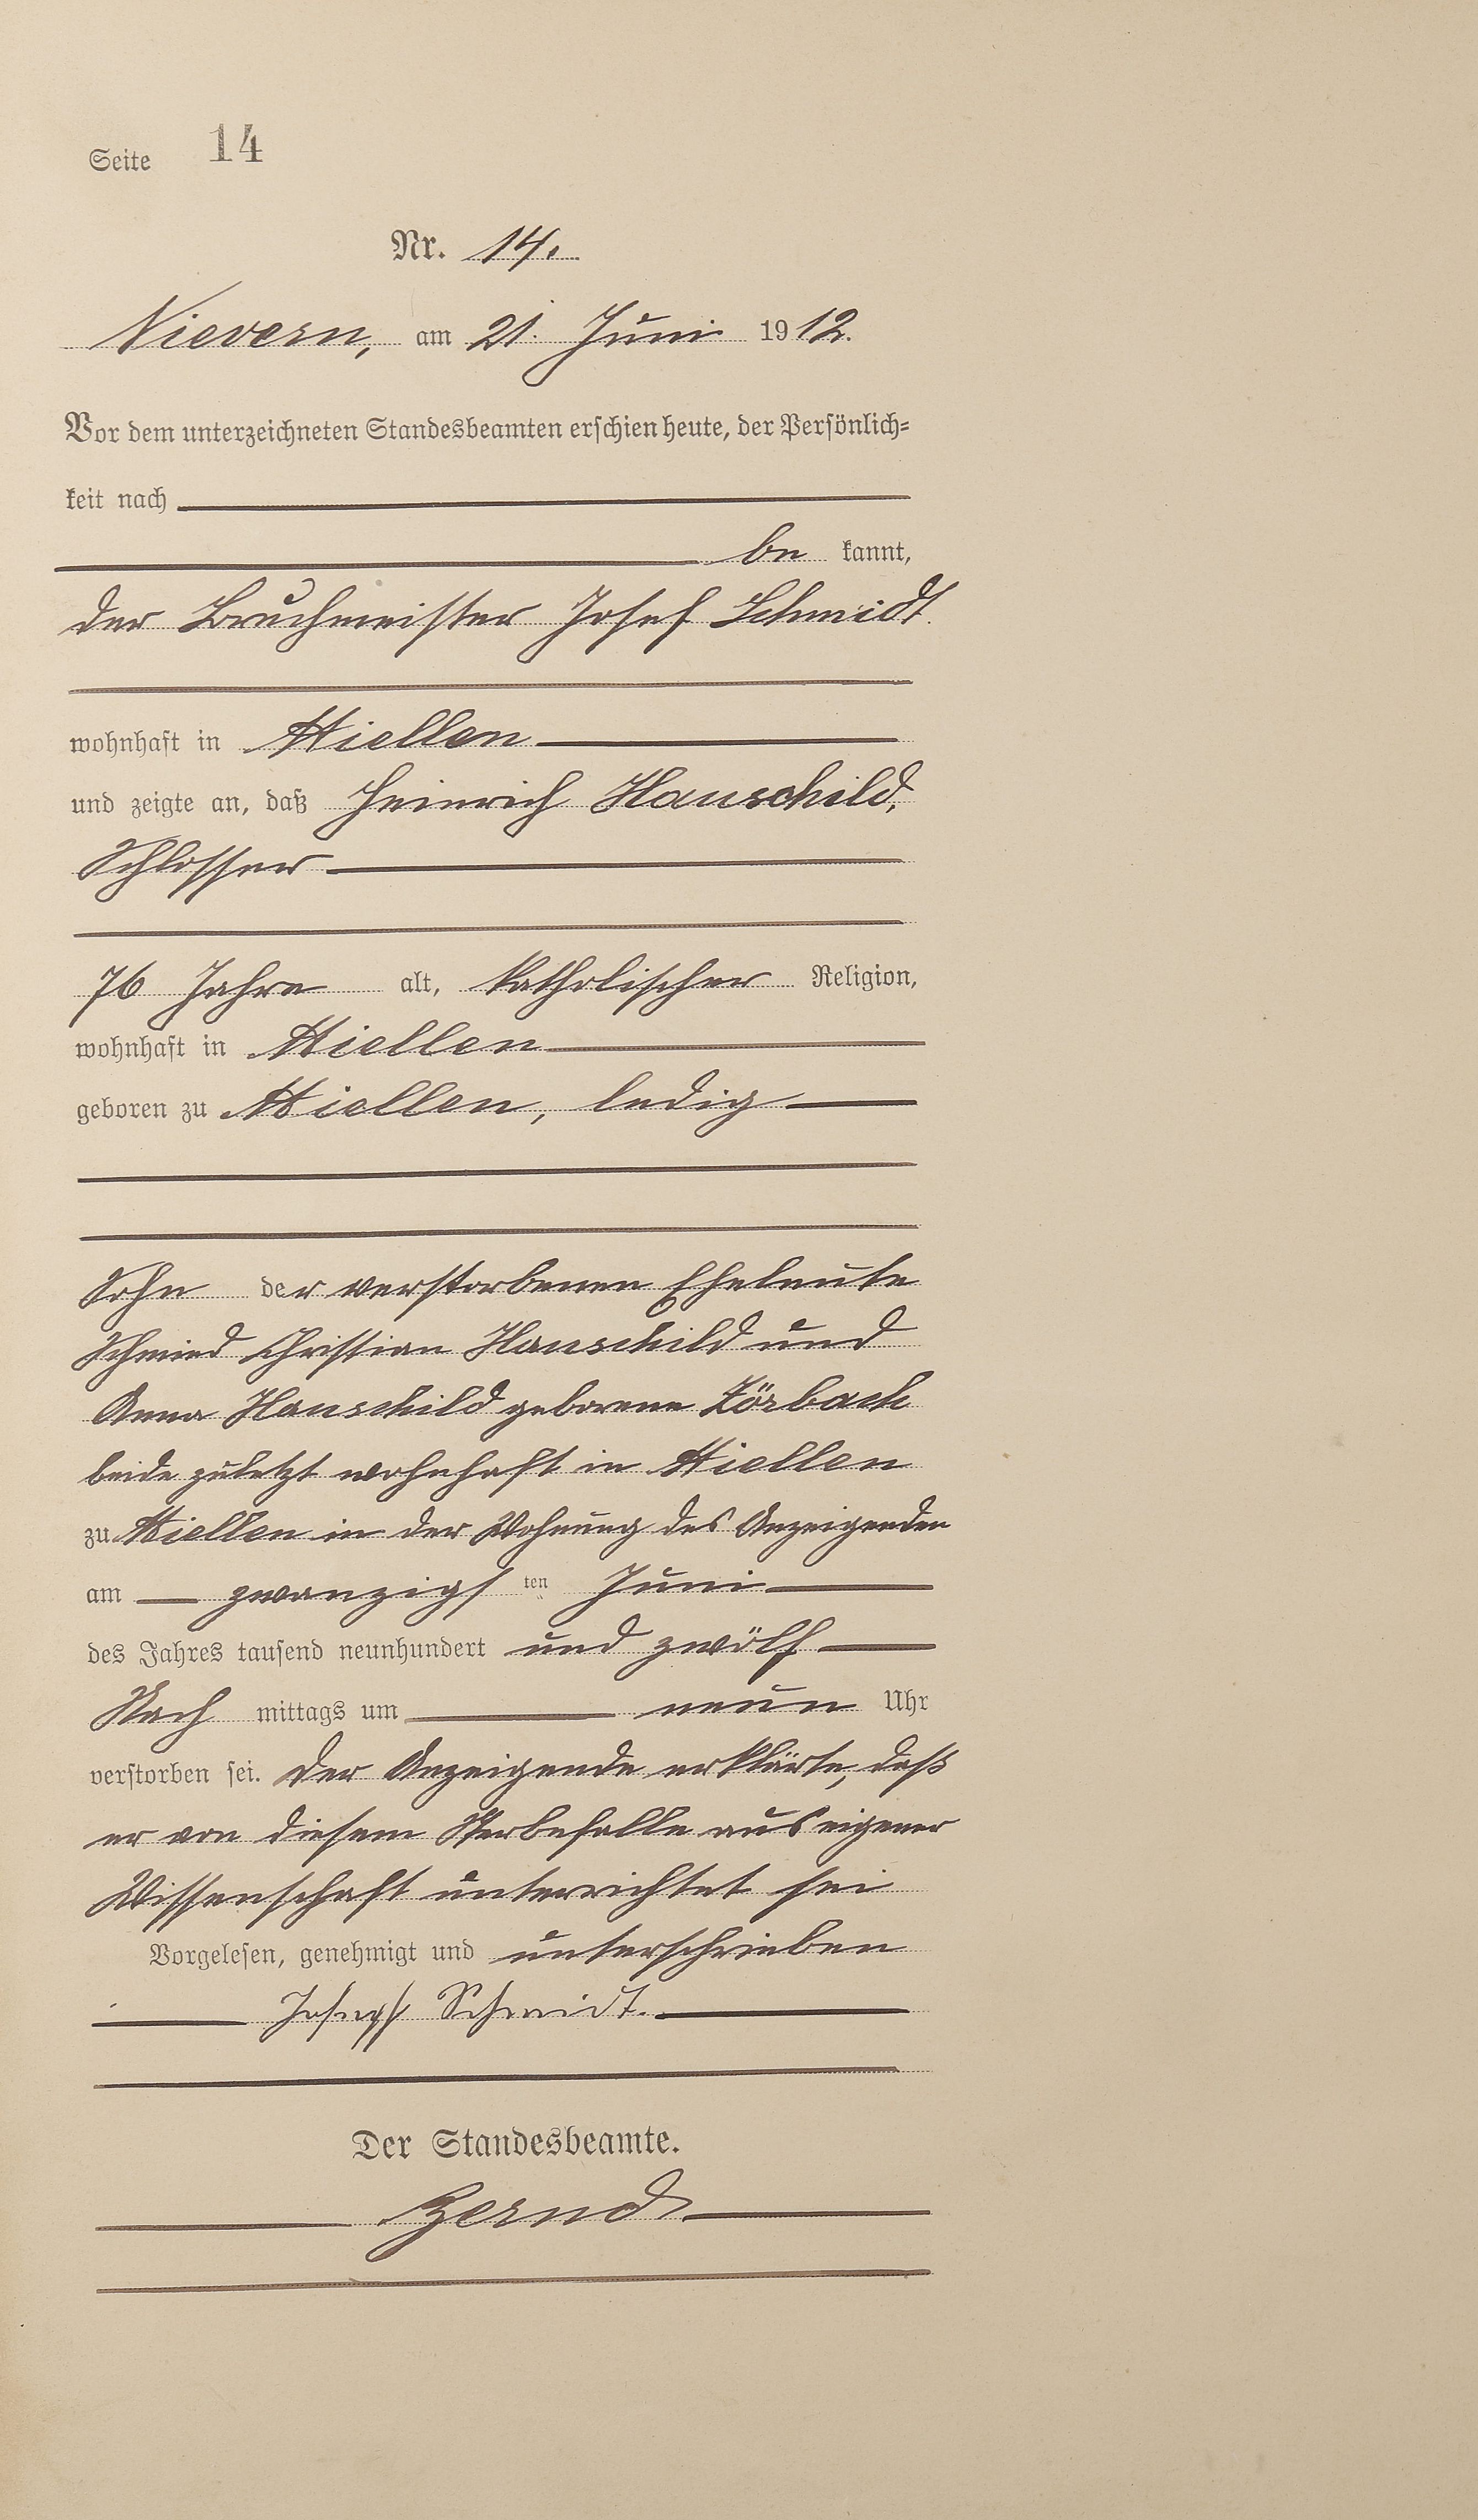 Seite 14
Nr. 14.
Nievern, am 21. Juni 1912.
Vor dem unterzeichneten Standesbeamten erschien heute, der Persönlich-
keit nach
be kannt,
der Bruchmeister Josef Schmidt.
wohnhaft in Miellen
und zeigte an, daß Heinrich Hauschild,
Schlosser
76 Jahre alt, katholischer Religion,
wohnhaft in Miellen
geboren zu Miellen, ledig
Sohn der verstorbenen Eheleute
Schmied Christian Hauschild und
Anna Hauschild geborene Zörbach
beide zuletzt wohnhaft in Miellen
zu Miellen in der Wohnung des Anzeigenden
am zwanzigsten Juni
des Jahres tausend neunhundert und zwölf
Nach mittags um neun Uhr
verstorben sei. Der Anzeigende erklärte, daß
er von diesem Sterbefalle aus eigener
Wissenschaft unterrichtet sei
Vorgelesen, genehmigt und unterschrieben
Joseph Schmidt.
Der Standesbeamte.
Zernd